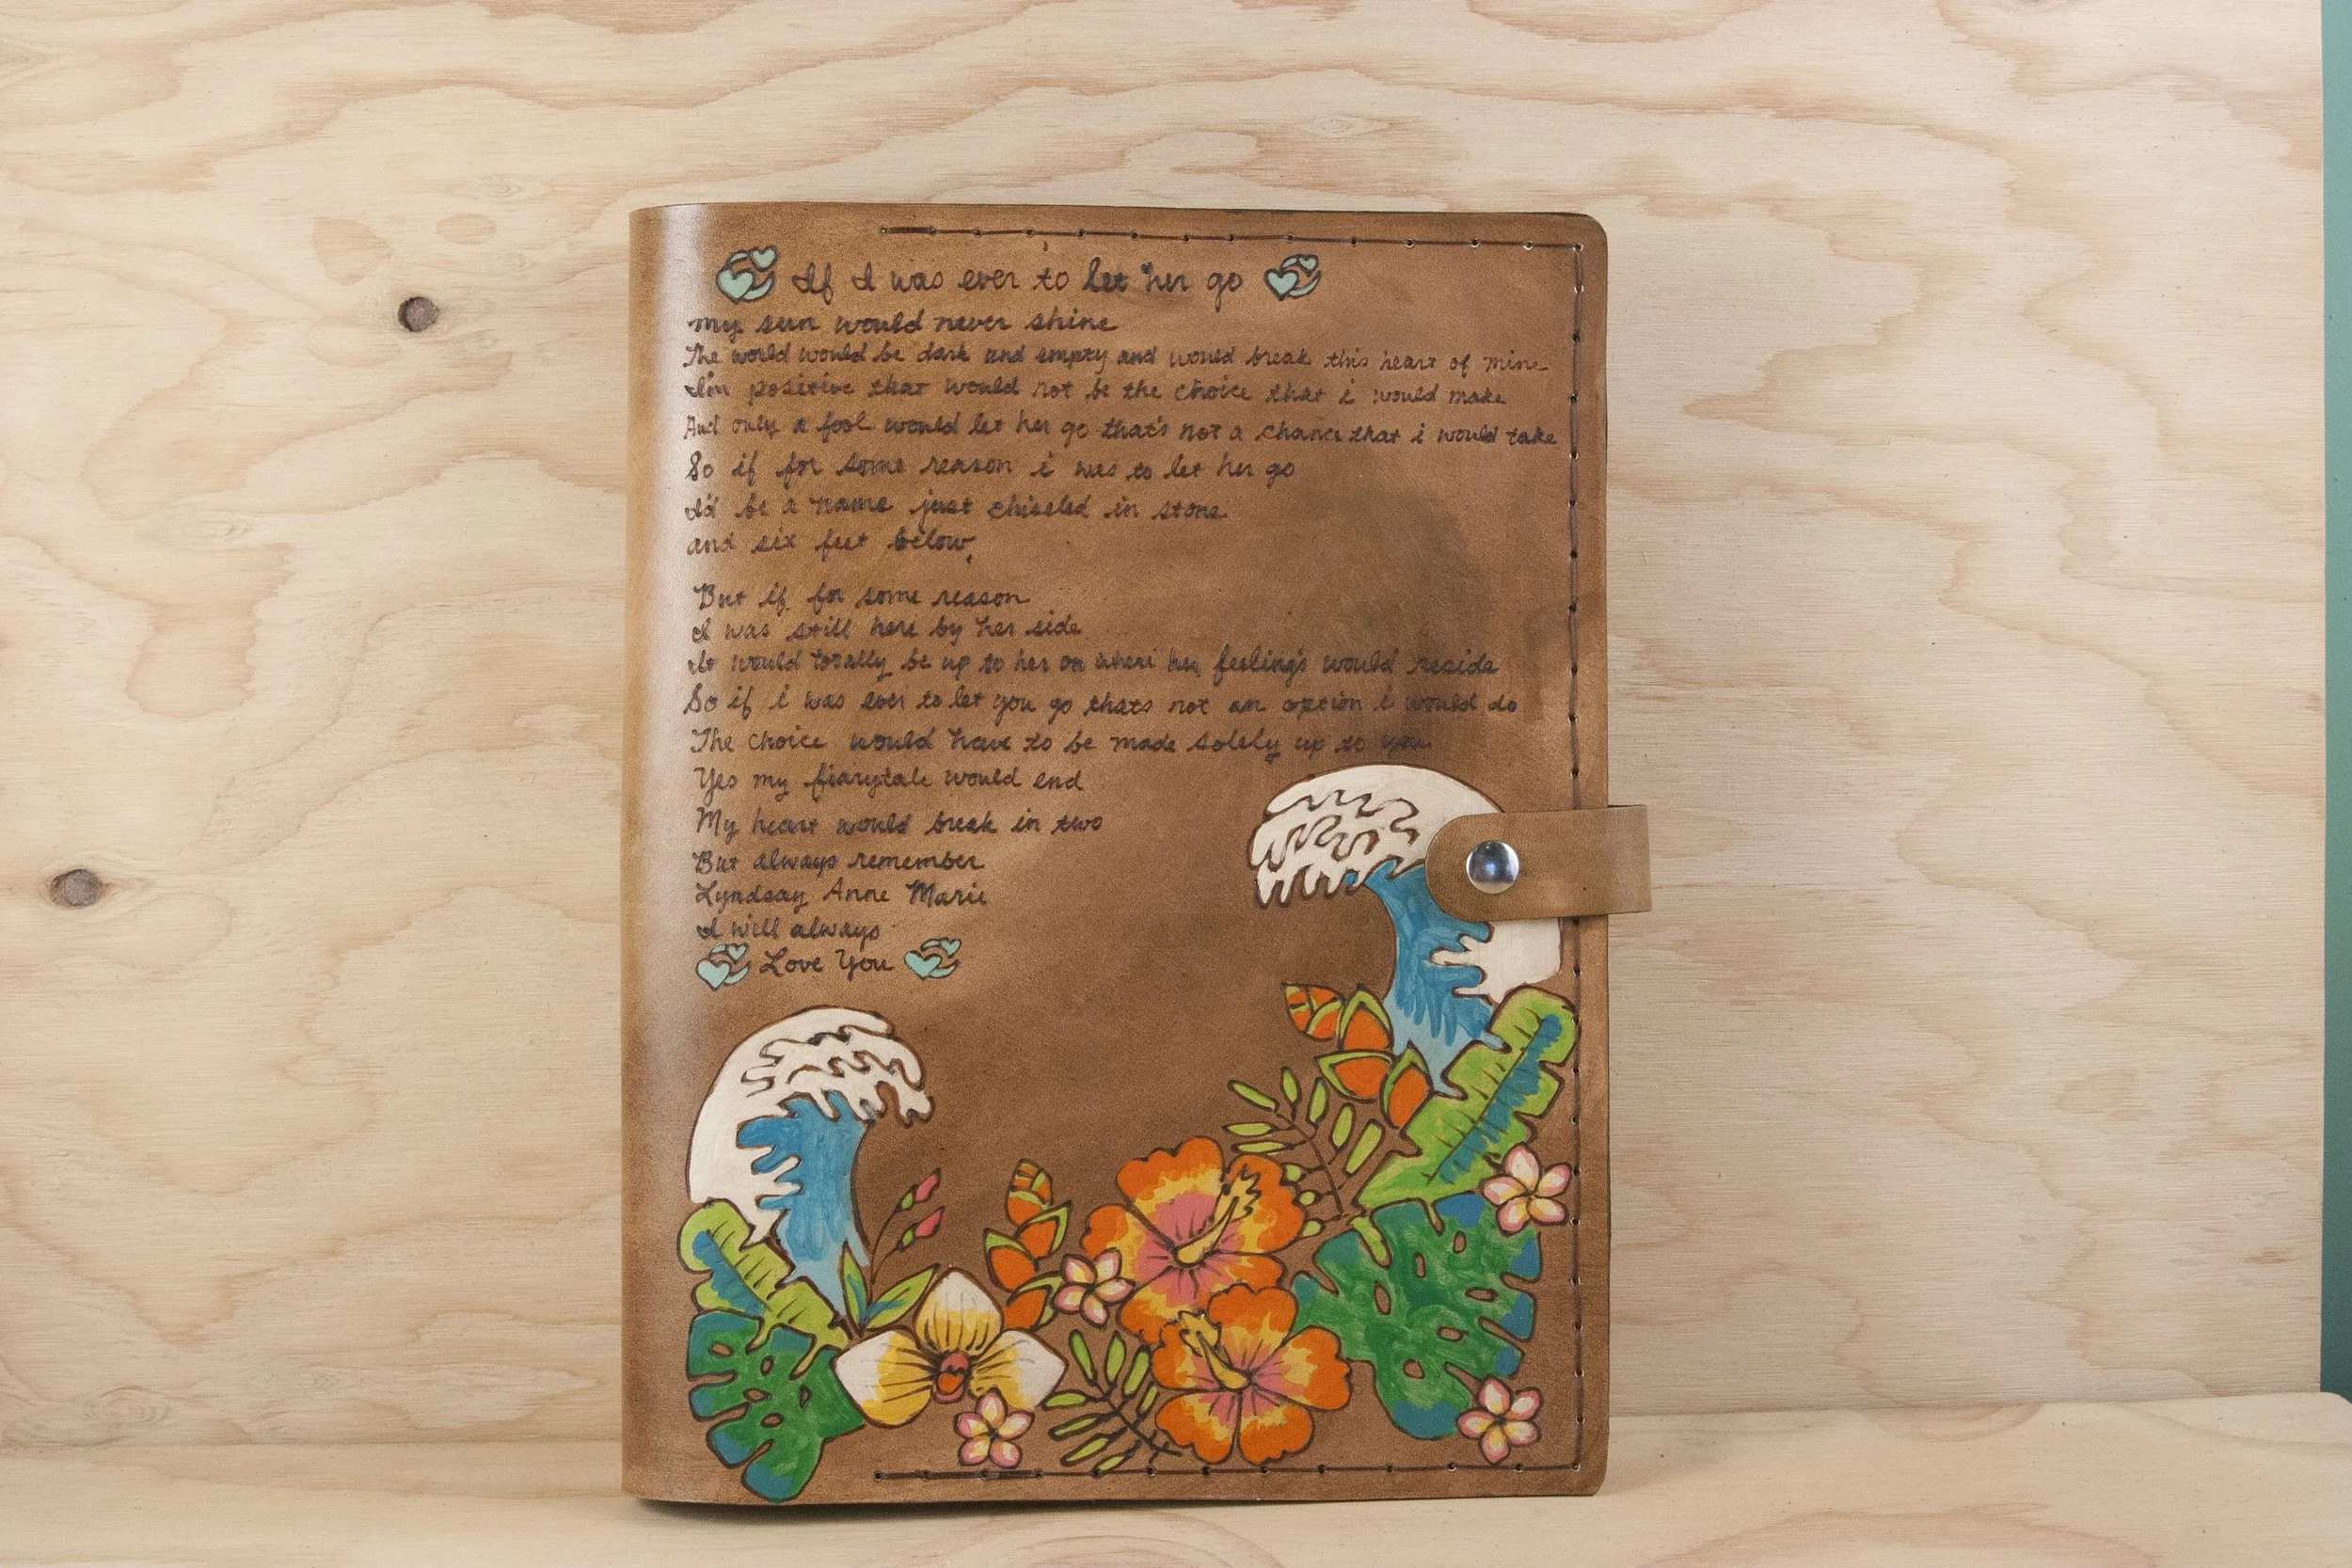 If I was ever to let her go
my sun would never shine
The world would be dark and empty and would break this heart of mine
I'm positive that would not be the choice that i would make
And only a fool would let her go that's not a chance that i would take
So if for some reason i was to let her go
I'd be a name just chiseled in stone
and six feet below,
But if for some reason
I was still here by her side
It would totally be up to her on where her feeling's would reside
So if i was ever to let you go thats not an option i would do
The choice would have to be made solely up to you
Yes my fiarytale would end
My heart would break in two
But always remember
Lyndsay Anne Marie
I will always
Love You